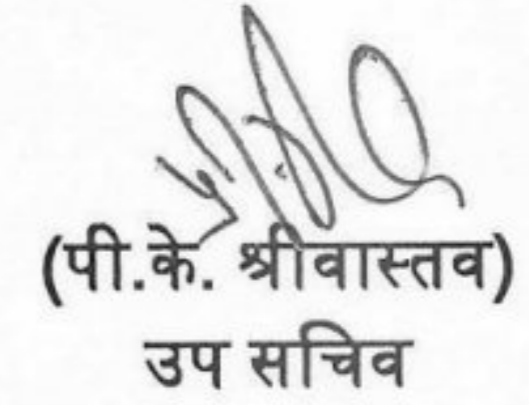 (पी.के. श्रीवास्तव)
उप सचिव